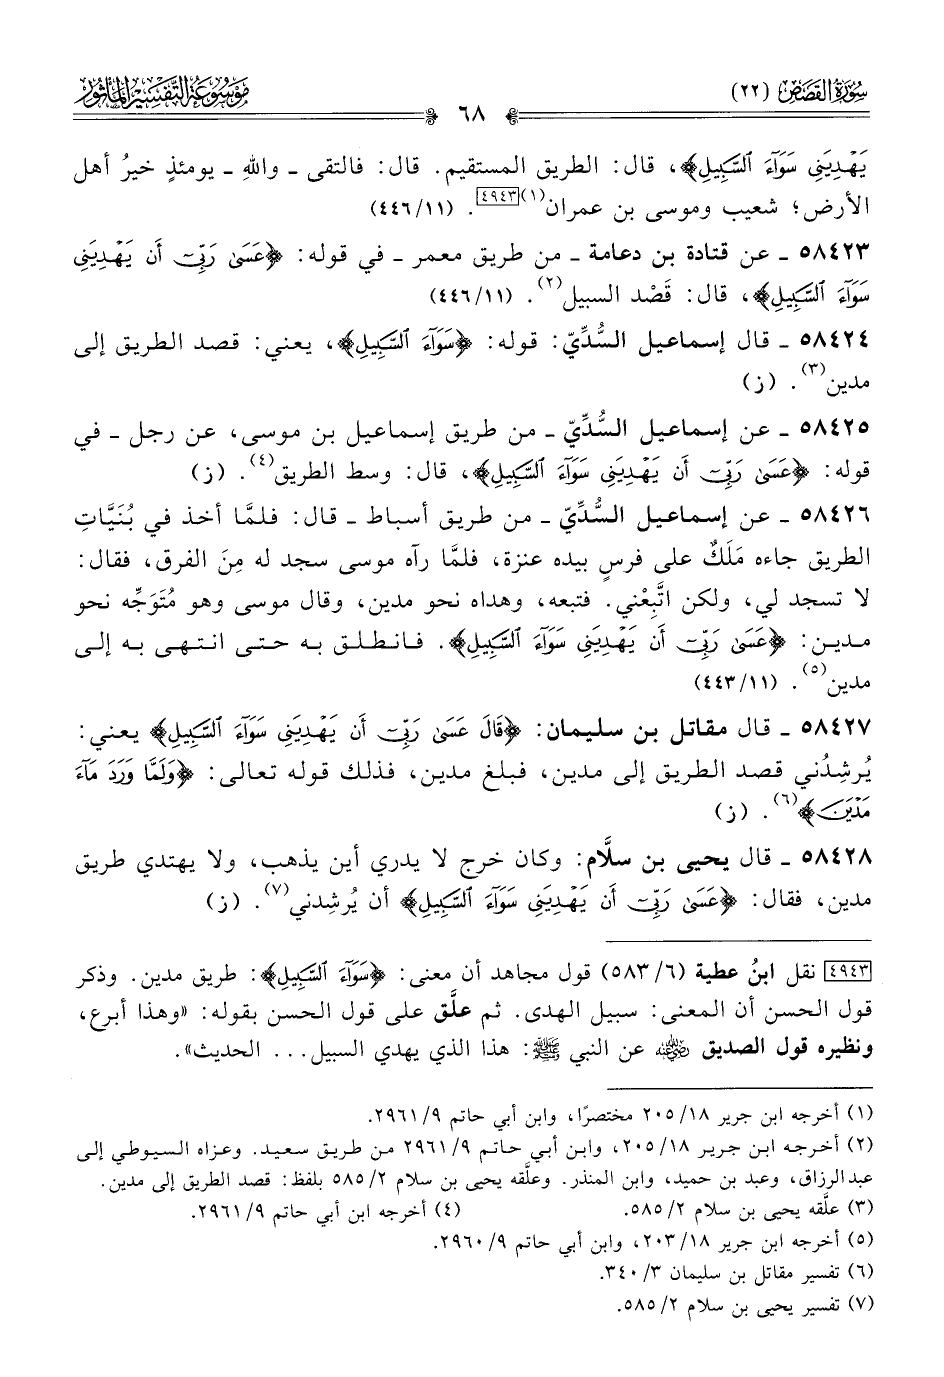 سُورَةُ القَصَصِ (٢٢)
٦٨
مَوْسُوعَةُ التَّفْسِيرِ المَأْثُورِ
يَهْدِيَنِي سَوَآءَ ٱلسَّبِيلِ﴾، قال: الطريق المستقيم. قال: فالتقى ـ واللهِ ـ يومئذٍ خيرُ أهل
الأرض؛ شعيب وموسى بن عمران(١)[٤٩٤٣]. (١١/ ٤٤٦)
٥٨٤٢٣ ـ عن قتادة بن دعامة ـ من طريق معمر ـ في قوله: ﴿عَسَىٰ رَبِّيٓ أَن يَهْدِيَنِي
سَوَآءَ ٱلسَّبِيلِ﴾، قال: قَصْد السبيل(٢). (١١/ ٤٤٦)
٥٨٤٢٤ ـ قال إسماعيل السُّدِّيّ: قوله: ﴿سَوَآءَ ٱلسَّبِيلِ﴾، يعني: قصد الطريق إلى
مدين(٣). (ز)
٥٨٤٢٥ ـ عن إسماعيل السُّدِّيّ ـ من طريق إسماعيل بن موسى، عن رجل ـ في
قوله: ﴿عَسَىٰ رَبِّيٓ أَن يَهْدِيَنِي سَوَآءَ ٱلسَّبِيلِ﴾، قال: وسط الطريق(٤). (ز)
٥٨٤٢٦ ـ عن إسماعيل السُّدِّيّ ـ من طريق أسباط ـ قال: فلمَّا أخذ في بُنَيَّاتِ
الطريق جاءه مَلَكٌ على فرسٍ بيده عنزة، فلمَّا رآه موسى سجد له مِنَ الفرق، فقال:
لا تسجد لي، ولكن اتَّبِعْني. فتبعه، وهداه نحو مدين، وقال موسى وهو مُتَوَجِّه نحو
مدين: ﴿عَسَىٰ رَبِّيٓ أَن يَهْدِيَنِي سَوَآءَ ٱلسَّبِيلِ﴾. فانطلق به حتى انتهى به إلى
مدين(٥). (١١/ ٤٤٣)
٥٨٤٢٧ ـ قال مقاتل بن سليمان: ﴿قَالَ عَسَىٰ رَبِّيٓ أَن يَهْدِيَنِي سَوَآءَ ٱلسَّبِيلِ﴾ يعني:
يُرشِدُني قصد الطريق إلى مدين، فبلغ مدين، فذلك قوله تعالى: ﴿وَلَمَّا وَرَدَ مَآءَ
مَدْيَنَ﴾(٦). (ز)
٥٨٤٢٨ ـ قال يحيى بن سلَّام: وكان خرج لا يدري أين يذهب، ولا يهتدي طريق
مدين، فقال: ﴿عَسَىٰ رَبِّيٓ أَن يَهْدِيَنِي سَوَآءَ ٱلسَّبِيلِ﴾ أن يُرشِدني(٧). (ز)
[٤٩٤٣] نقل ابنُ عطية (٦/ ٥٨٣) قول مجاهد أن معنى: ﴿سَوَآءَ ٱلسَّبِيلِ﴾: طريق مدين. وذكر
قول الحسن أن المعنى: سبيل الهدى. ثم علَّق على قول الحسن بقوله: «وهذا أبرع،
ونظيره قول الصديق رضي الله عنه عن النبي ﷺ: هذا الذي يهدي السبيل... الحديث».
(١) أخرجه ابن جرير ١٨/ ٢٠٥ مختصرًا، وابن أبي حاتم ٩/ ٢٩٦١.
(٢) أخرجه ابن جرير ١٨/ ٢٠٥، وابن أبي حاتم ٩/ ٢٩٦١ من طريق سعيد. وعزاه السيوطي إلى
عبدالرزاق، وعبد بن حميد، وابن المنذر. وعلَّقه يحيى بن سلام ٢/ ٥٨٥ بلفظ: قصد الطريق إلى مدين.
(٣) علَّقه يحيى بن سلام ٢/ ٥٨٥. (٤) أخرجه ابن أبي حاتم ٩/ ٢٩٦١.
(٥) أخرجه ابن جرير ١٨/ ٢٠٣، وابن أبي حاتم ٩/ ٢٩٦٠.
(٦) تفسير مقاتل بن سليمان ٣/ ٣٤٠.
(٧) تفسير يحيى بن سلام ٢/ ٥٨٥.